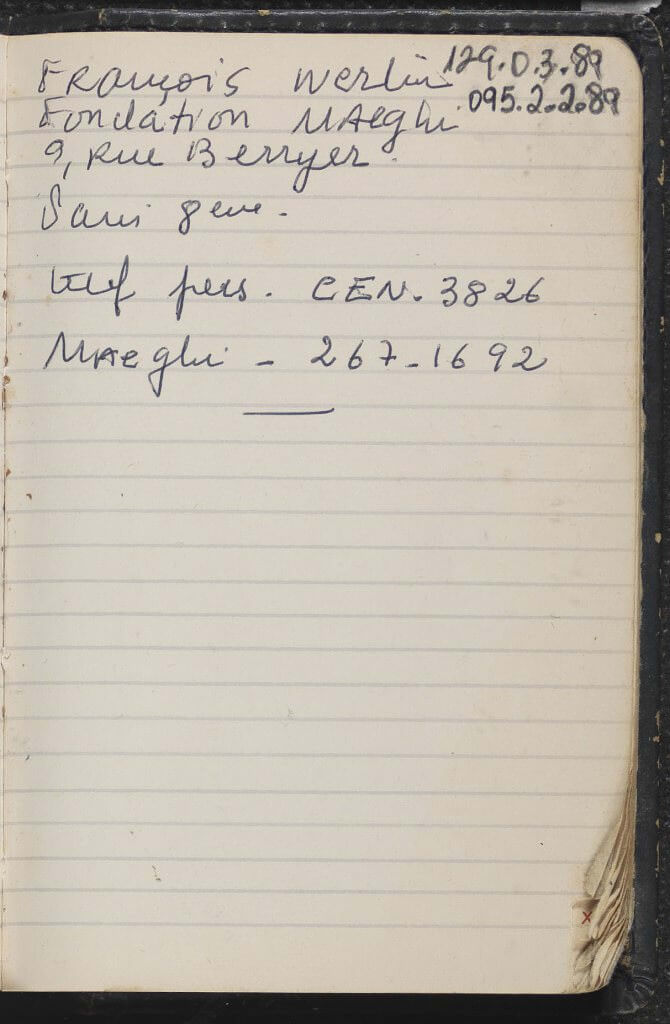 François Werlin
Fondation MAeght
9, Rue Berryer.
Paris 8eme.
telef pers. CEN. 3826
MAeght - 267-1692
129.0.3.89
095.2.2.89
x